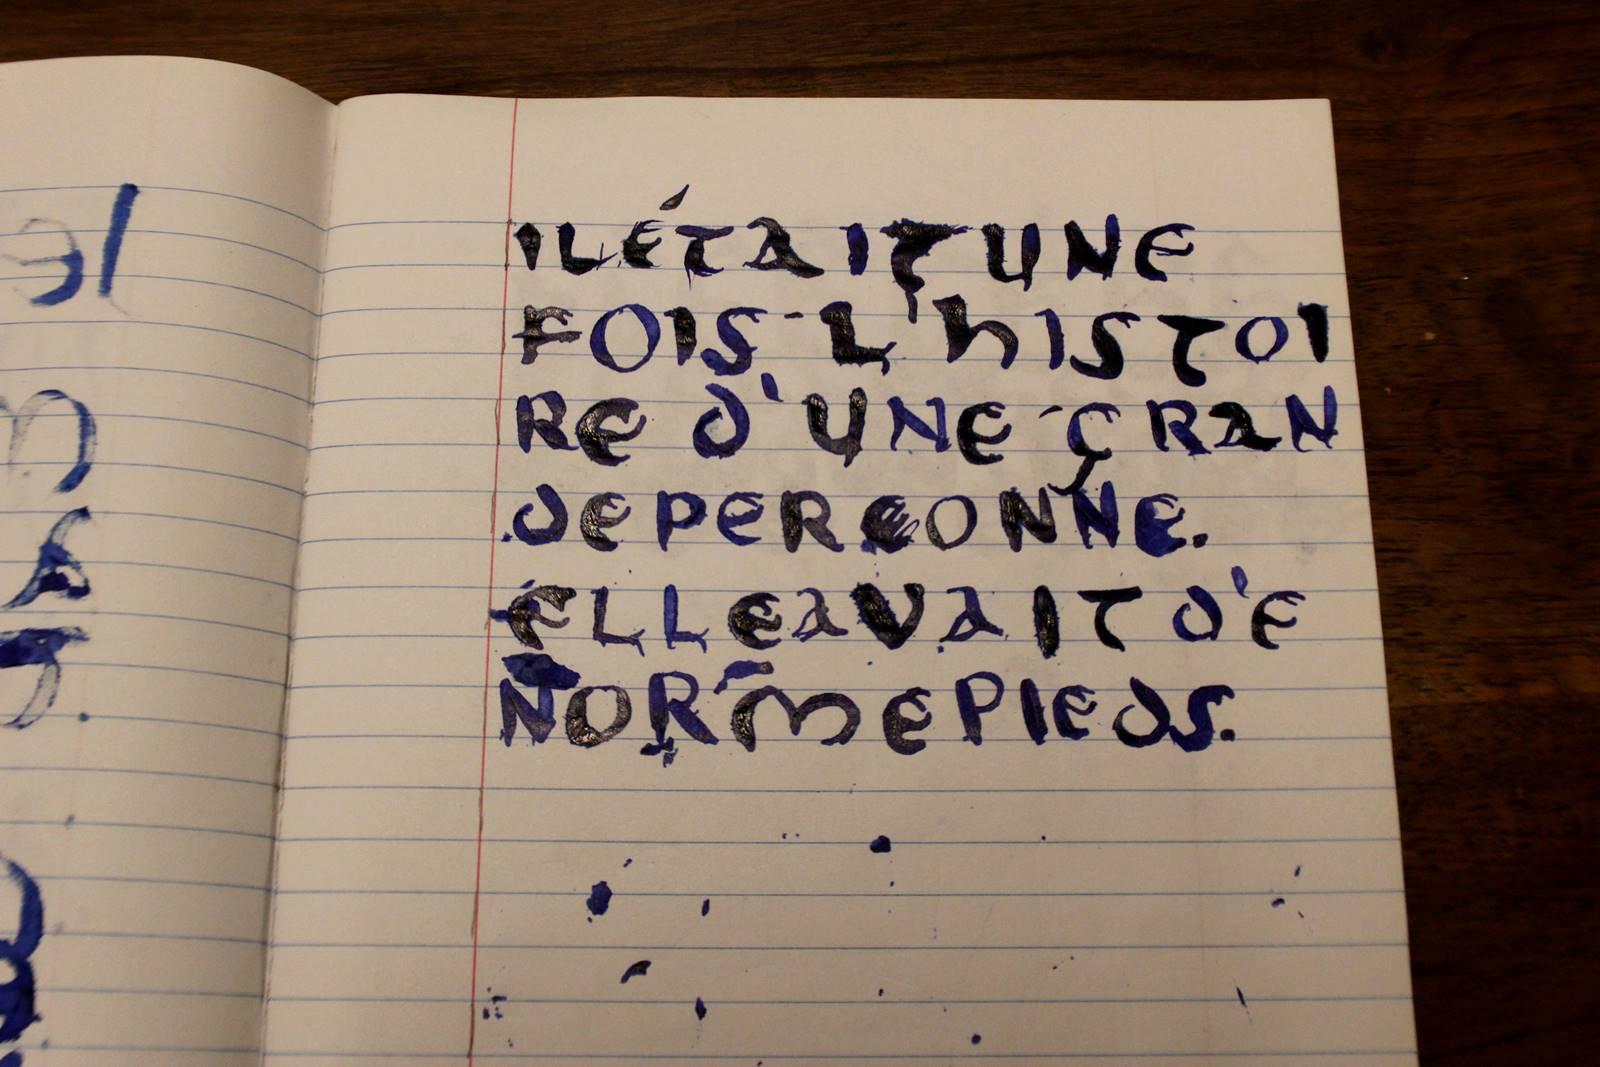 IL ÉTAIT UNE
FOIS L'hISTOI
RE D'UNE GRAN
DE PERCONNE.
ELLE AVAIT D'E
NORME PIEDS.